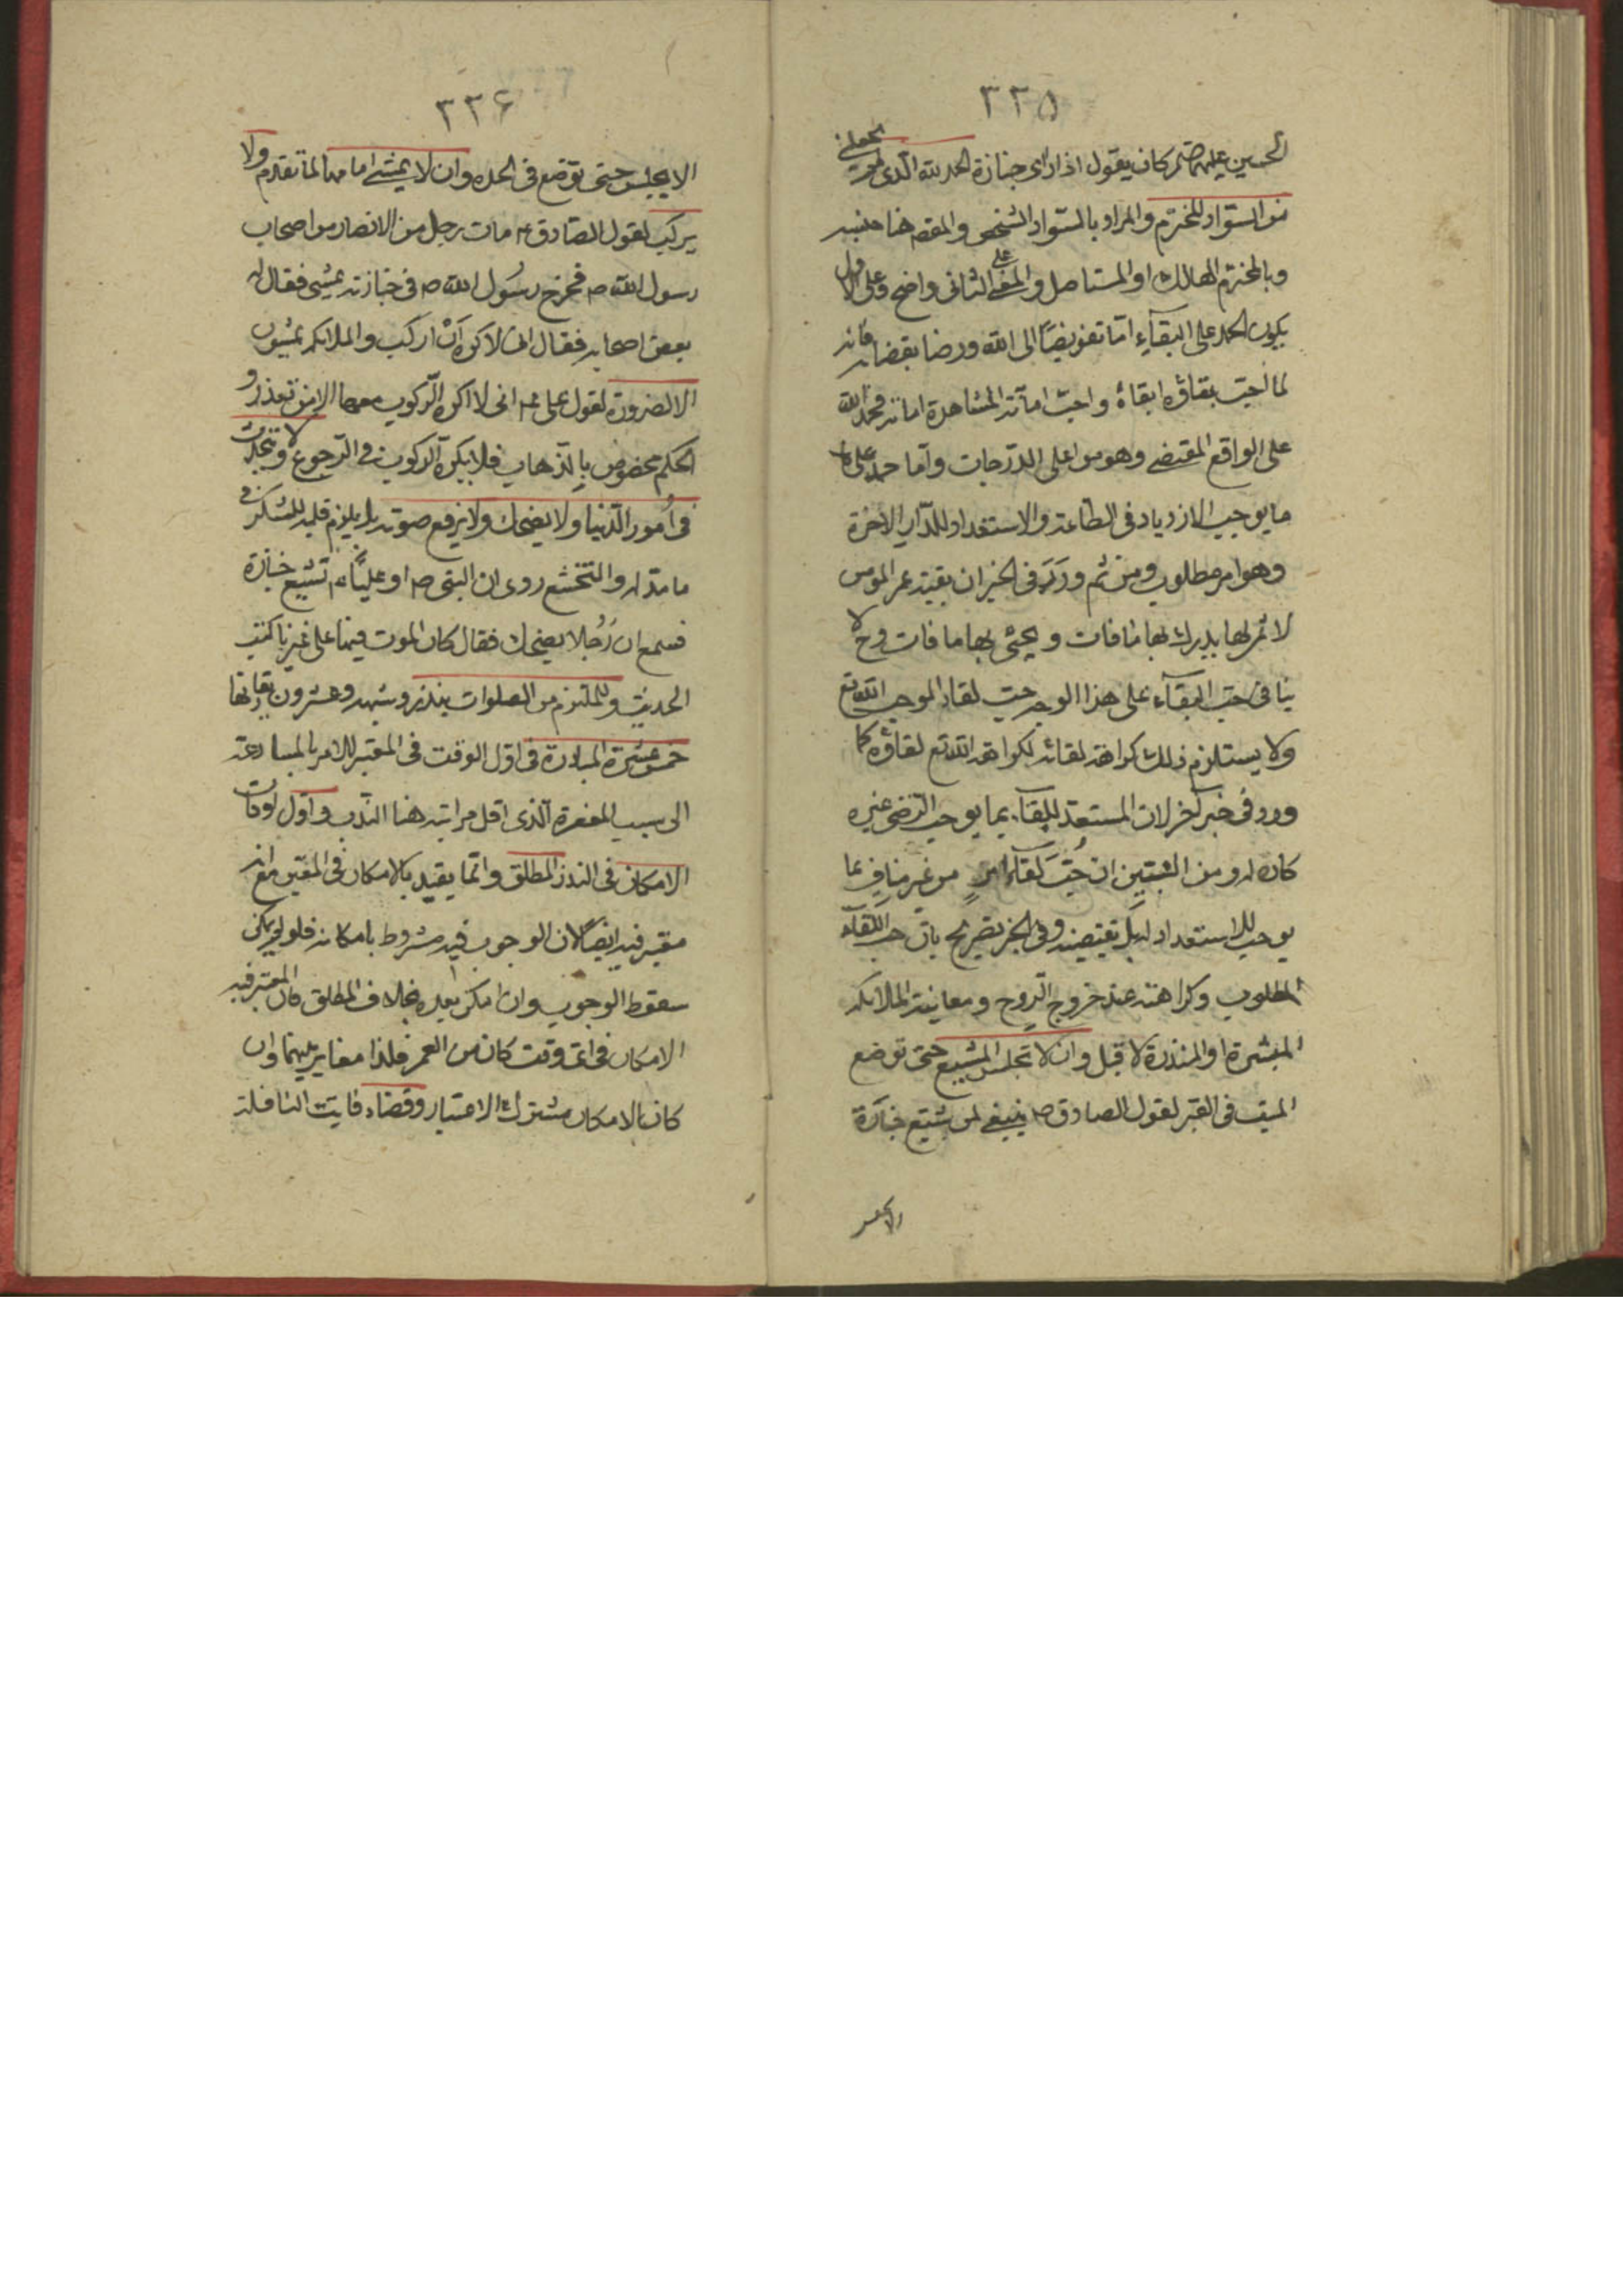 ٣٣٥
الحسين عليهما صلم كان يقول اذا رأى جنازة الحمد لله الذى لم يجعلنى
من السّواد المخترم والمراد بالسّواد الشّخص والمقص هنا جنسه
وبالمخترم الهالك او المستاصل والمعنى على الثانى واضح وعلى الاول
يكون الحمد على البقاء امّا تفويضًا الى الله ورضا بقضائه فانه
لما احبّ بقاؤه ابقاه واحبّ اماتة المشاهدة اماته فحمد الله
على الواقع المقتضى وهو من اعلى الدّرجات وأما حمد على
ما يوجب الازدياد فى الطاعة والاستعداد للدّار الاخرة
وهو امر مطلوب ومن ثم ورَدَ فى الخبر ان بقية عمر المؤمن
لا ثمن لها يدرك بها ما فات ويحيى بها ما فات وح لا
ينافى حب البقاء على هذا الوجه حبّ لقاء الموجب الله تع
ولا يستلزم ذلك كراهة لقائه لكراهة الله تع لقاؤه كما
ورد فى خبر آخر لان المستعدّ للقاء بما يوجب الرّضى عنه
كاره له ومن البيّن ان حُبّ لقاء امرٍ من غير منافٍ لما
يوجب للاستعداد له بل تقتضيه وفى الخبر تصريح بانّ حب اللّقاء
المطلوب وكراهته عند خروج الرّوح ومعاينة الملائكة
المبشرة او المنذرة لا قبل وان لا تجلس المشيع حتى توضع
الميت فى القبر لقول الصادق ص ينبغى لمن يشيّع جنازة
الا يجلس
٣٣۶
الا يجلس حتى توضع فى لحده وان لا يمشى امامها لما تقدم ولا
يركب لقول الصّادق ع مات رجل من الانصار من اصحاب
رسول الله ص فخرج رسُول الله ص فى جنازته يمشى فقال له
بعض اصحابه فقال انى لاكره اَنْ اركب والملائكة يمشون
الا لضرورة لقول على ع انى لا اكره الرّكوب معها الا من تعذر و
الحكم مخصوص بالذهاب فلا يكره الركوب فى الرجوع ولا تتحدث
فى اُمور الدّنيا ولا يضحك ولا يرفع صوته بل يلزم قلبه للتفكر فى
ما مدله والتخشع روى ان النبى ص او عليًّا ع تشيع جنازة
فسمع ان رَجُلا يضحك فقال كان الموت فيها على غيرنا كتب
الحديث وللملتزم من الصلوات بنذر وشبهه وعشرون يقارنها
خمس عشرة المبادرة فى اوّل الوقت فى المعتبر للامر بالمسارعة
الى سبب المغفرة الّذى اقل مراتبه هنا النّدب واوّل اوقات
الامكان فى النذر المطلق وانّما يقيد بالامكان فى المعين مع انه
معتبر فيه ايضًا لان الوجوب فيه مشروط بامكانه فلو لم يمكن
سقوط الوجوب وان امكن بعده بخلاف المطلق فان المعتبر فيه
الامكان فى اى وقت كان من العمر فلذا مغاير بينهما وان
كان الامكان مشترك الاعتبار وقضاء فايت النافلة